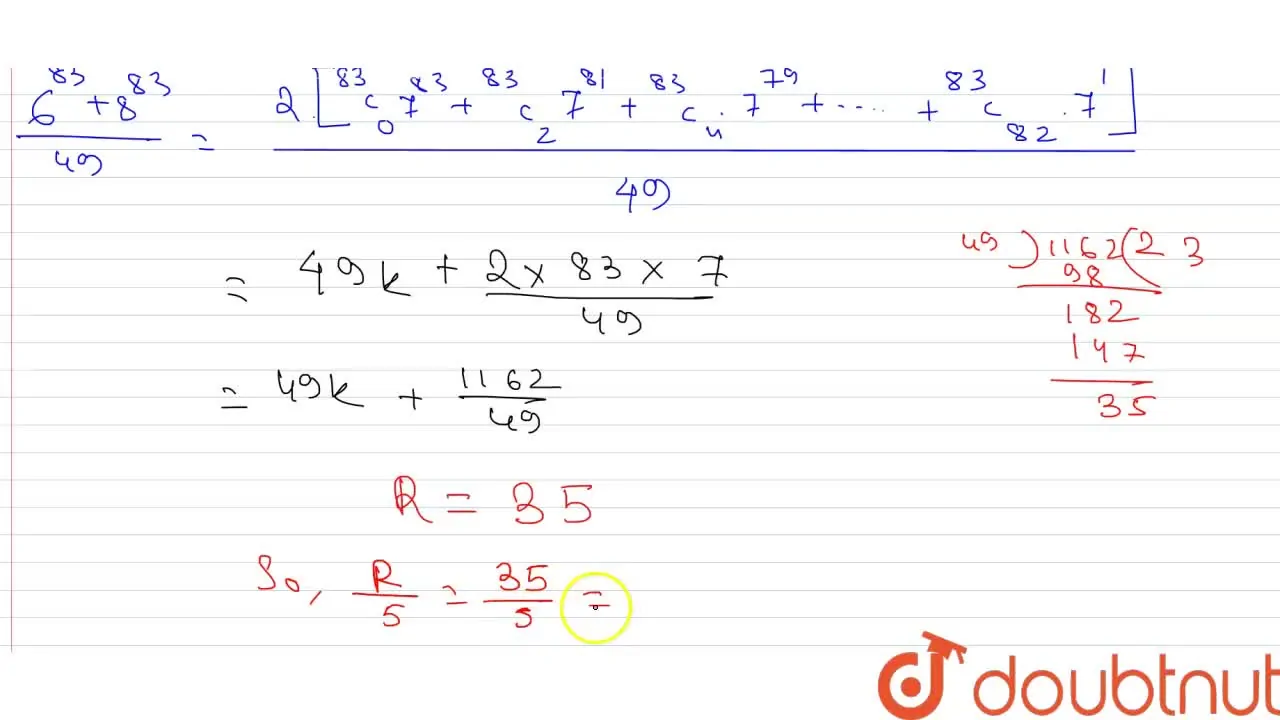 6^83 + 8^83 / 49 = 2 [ ^83C_0 7^83 + ^83C_2 7^81 + ^83C_4 . 7^79 + ..... + ^83C_82 . 7^1 ] / 49
= 49k + 2 x 83 x 7 / 49
= 49k + 1162 / 49
R = 35
So, R/5 = 35/5 =
49 ) 1162 ( 2 3
98
182
147
35
doubtnut